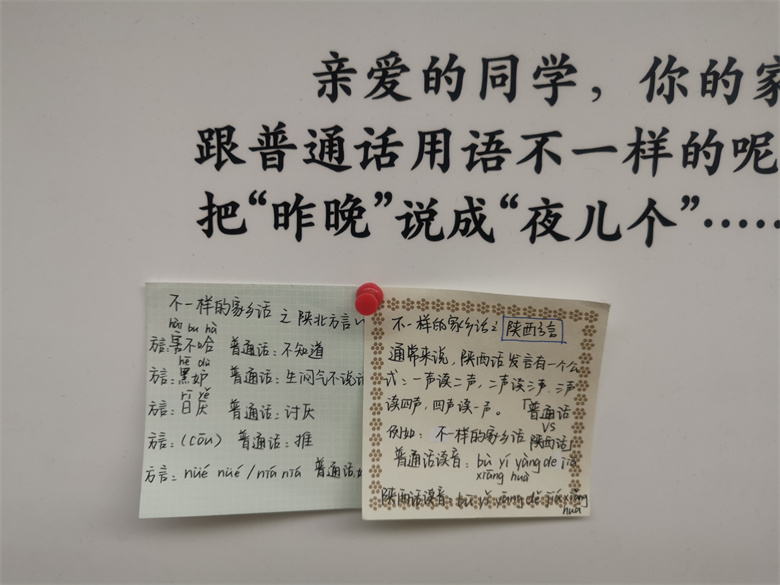 亲爱的同学，你的家
跟普通话用语不一样的呢
把“昨晚”说成“夜儿个”……
不一样的家乡话 之 陕北方言
hāi bu hà
方言:害不哈 普通话:不知道
hē dù
方言:黑妒 普通话:生闷气不说
rī yě
方言:日厌 普通话:讨厌
方言:(cōu) 普通话:推
方言: nüé nüé /niá niá 普通话
不一样的家乡话之 陕西方言
通常来说，陕西话发言有一个公
式:一声读二声，二声读三声，三声
读四声，四声读一声。「普通话
VS
例如: 不一样的家乡话 陕西话」
普通话读音: bù yí yàng de jiā
xiāng huà
陕西话读音: bū yǐ yāng dē jiá xiáng
huā